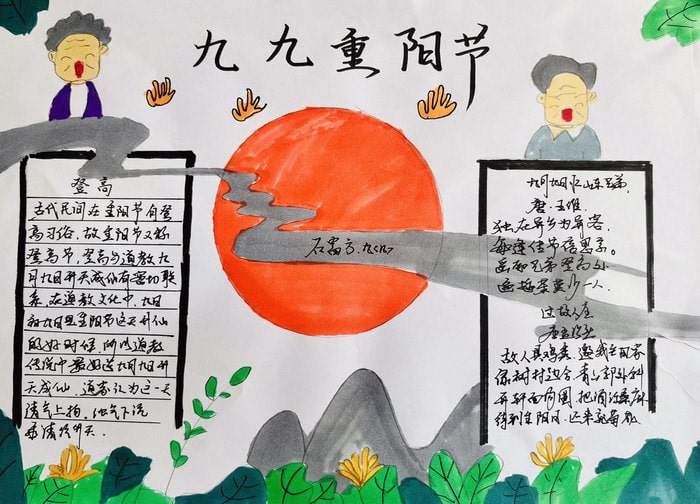 九九重阳节
登高
古代民间在重阳节有登
高习俗,故重阳节又称
登高节,登高与道教九
月九日升天成仙有密切联
系,在道教文化中,九月
初九日是重阳节这天升仙
的好时候,所以道教
传说中最好选九月九日升
天成仙,道家认为这一天
清气上扬,浊气下沉
九月九日忆山东兄弟
唐·王维
独在异乡为异客
每逢佳节倍思亲。
遥知兄弟登高处
遍插茱萸少一人.
过故人庄
故人具鸡黍,邀我至田家
绿树村边合,青山郭外斜
开轩面场圃,把酒话桑麻
待到重阳日,还来就菊花